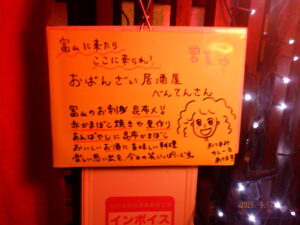 富山に来たら
ここに来られ!
営業中
おばんざい居酒屋
べんてんさん
富山のお刺身 昆布〆
赤かまぼし焼きや里作り
あんばやしに昆布かまぼし
おいしいお酒に美味しい料理
楽しい思い出を、今日も笑いっぱ
おつまみ
カレーも
あります
インボイス
2025. 9.12